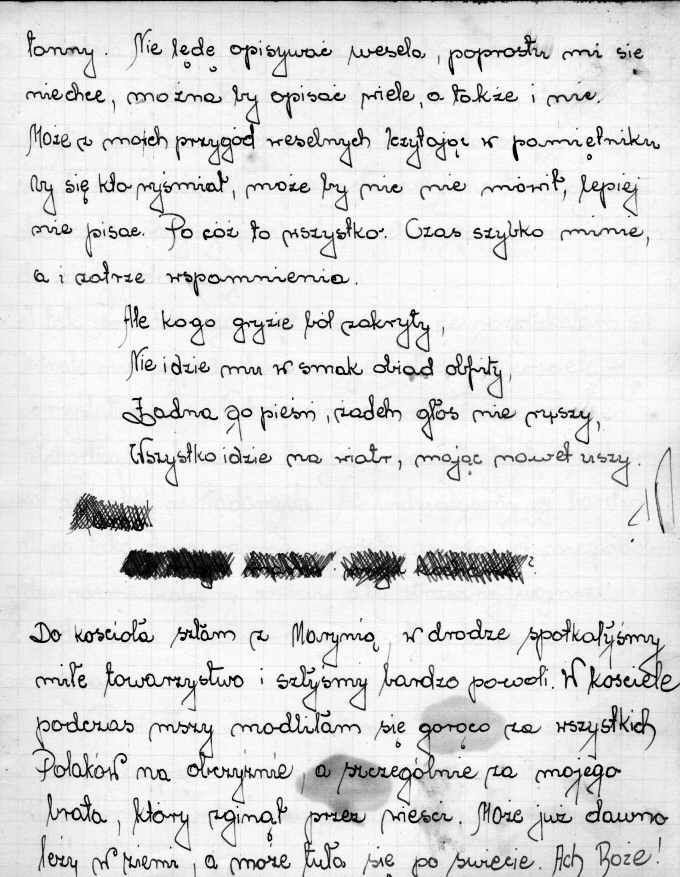 łanny. Nie będę opisywać wesela, poprostu mi się
niechce, można by opisać wiele, a także i nic.
Może z moich przygód weselnych czytając w pamiętniku
by się kto wyśmiał, może by nic nie mówił, lepiej
nie pisać. Po cóż to wszystko. Czas szybko minie,
a i zatrze wspomnienia.
Ale kogo gryzie ból zakryty,
Nie idzie mu w smak obiad obfity,
Żadna go pieśń, żaden głos nie ruszy,
Wszystko idzie na wiatr, mając nawet uszy.
Do kościoła szłam z Marynią, w drodze spotkałyśmy
miłe towarzystwo i szłyśmy bardzo powoli. W kościele
podczas mszy modliłam się gorąco za wszystkich
Polaków na obczyźnie, a szczególnie za mojego
brata, który zginął przez wieści. Może już dawno
leży w ziemi, a może tuła się po świecie. Ach Boże!